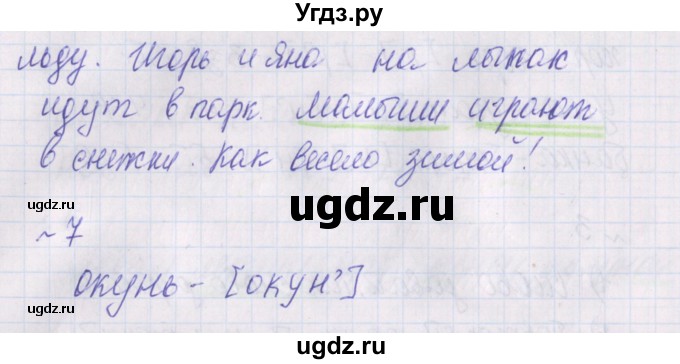 Угдз.ру
льду. Игорь и Яна на лыжах
идут в парк. Малыши играют
в снежки. Как весело зимой!
ugdz.ru
ugdz.ru
ugdz.ru
~ 7
окунь - [окун']
ugdz.ru
ugdz.ru